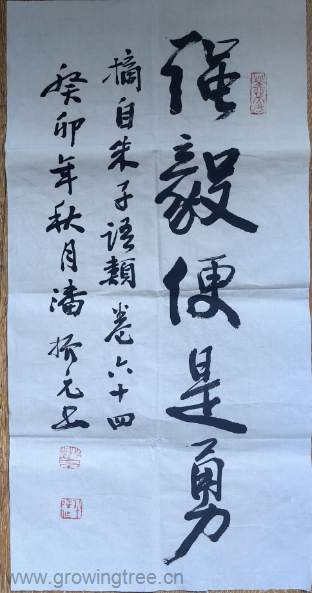 强毅便是勇
摘自朱子语類卷六十四
癸卯年秋月潘振元书
www.growingtree.cn